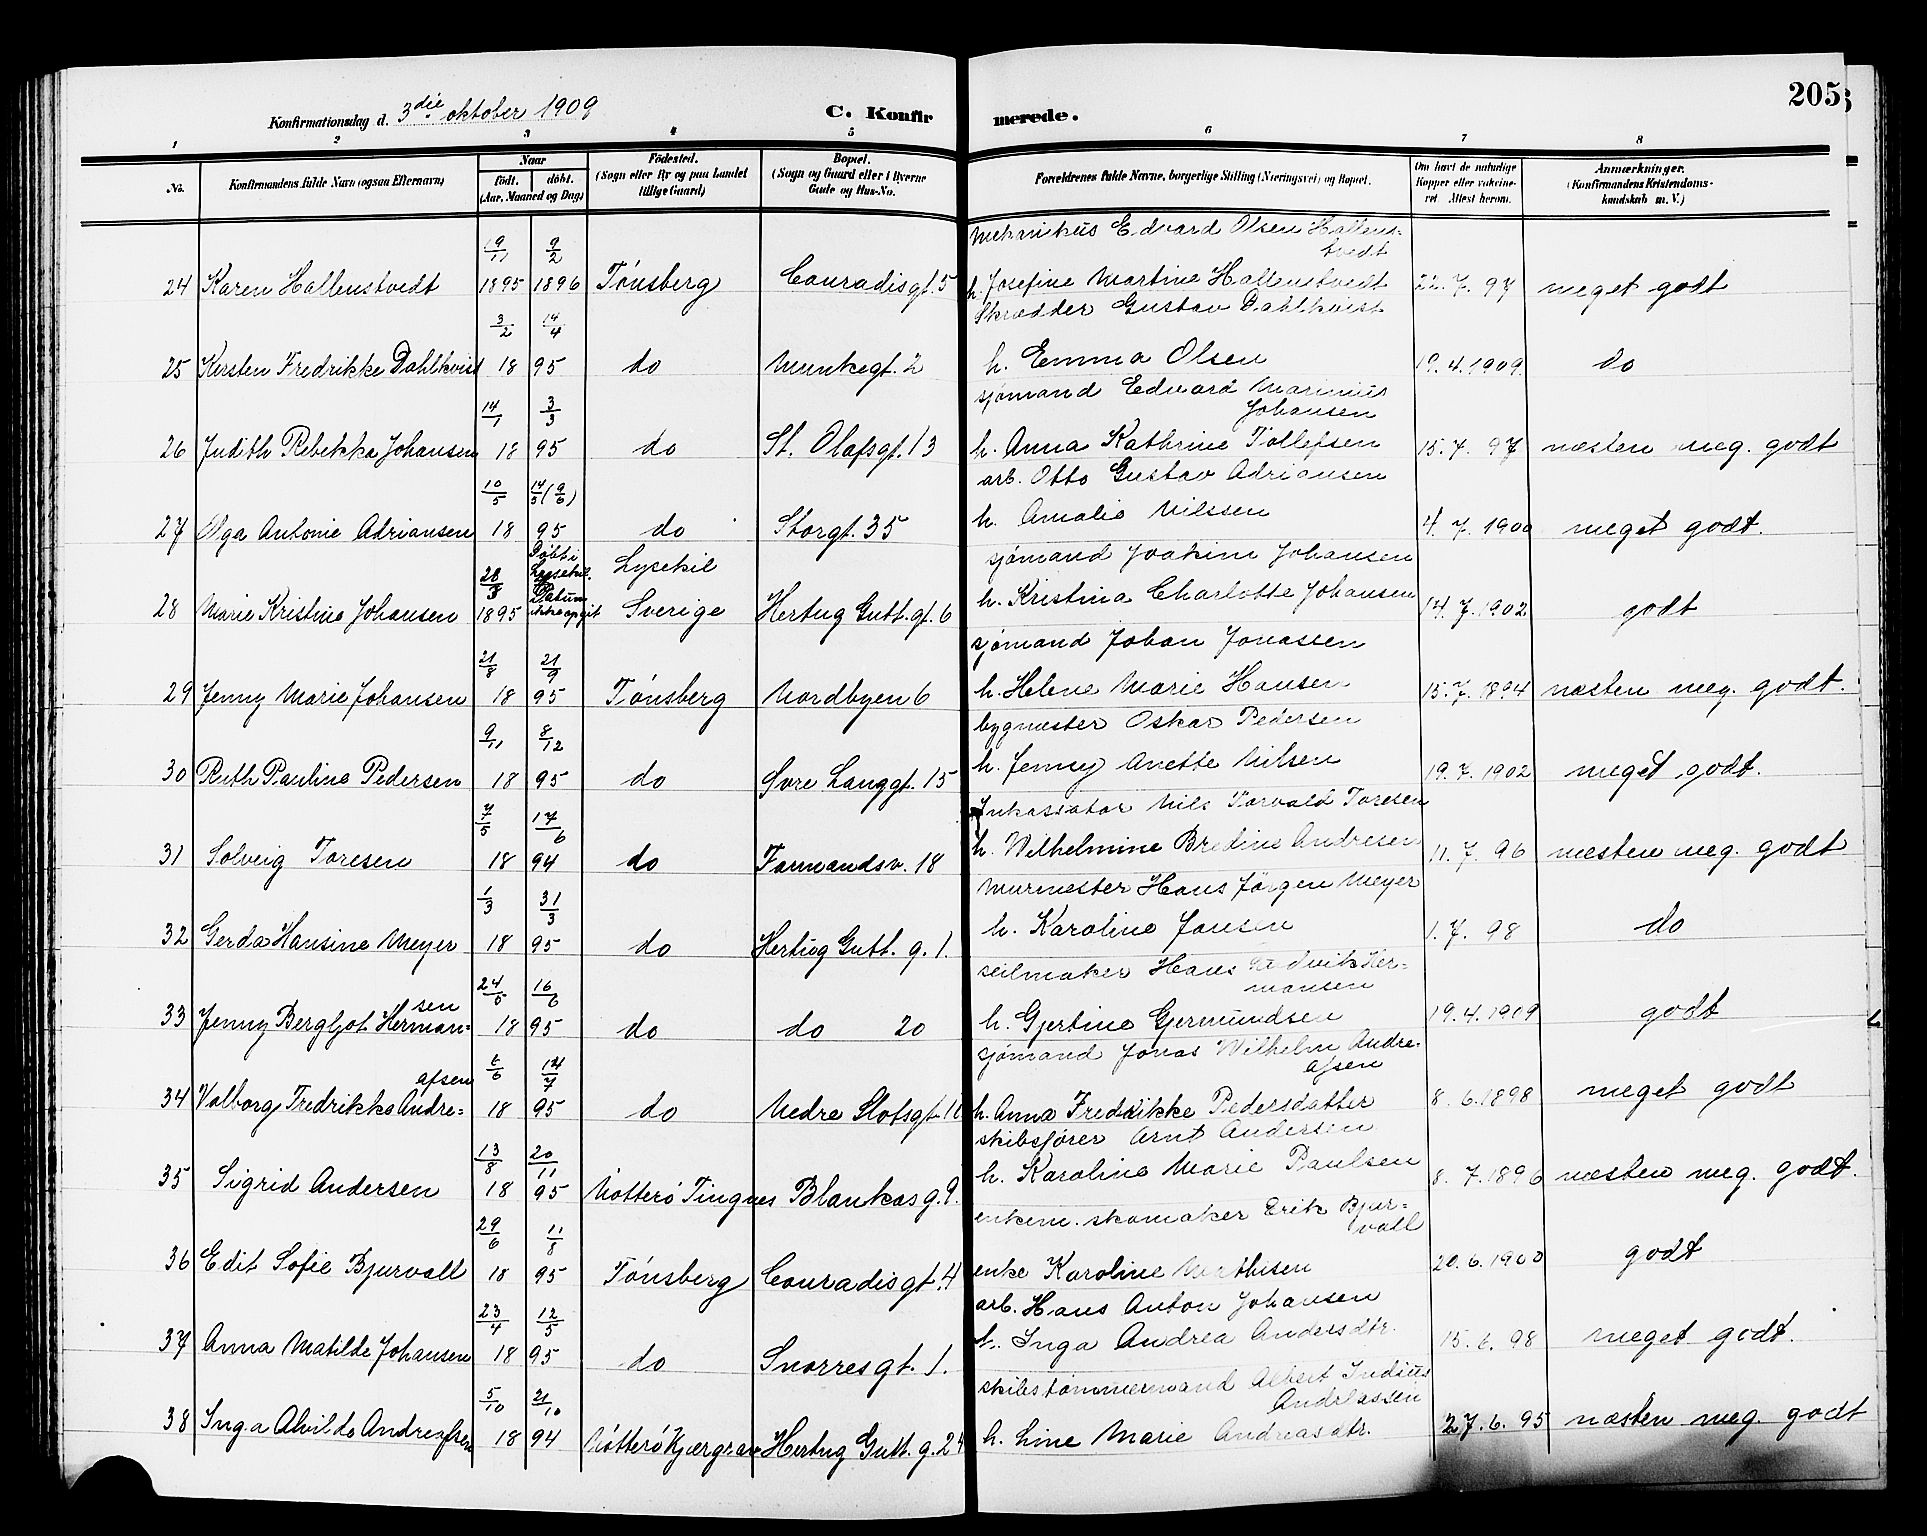 205
Konfirmationsdag d. 3die oktober 1909 C. Konfirmerede.
1 2 3 4 5 6 7 8
No. Konfirmandens fulde Navn (ogsaa Efternavn) Naar født. døbt. (Aar, Maaned og Dag) Fødested. (Sogn eller By og paa Landet tillige Gaard) Bopæl. (Sogn og Gaard eller i Byerne Gade og Hus-No. Forældrenes fulde Navne, borgerlige Stilling (Næringsvei) og Bopæl. Om havt de naturlige Kopper eller vakcineret. Attest herom. Anmærkninger. (Konfirmandens Kristendomskundskab m. V.)
19/11 9/2 Mekanikus Edvard Olsen Hallenstvedt
24 Karen Hallenstvedt 1895 1896 Tønsberg Conradisgt. 5 h. Josefine Martine Hallenstvedt 22. 7. 97 meget godt
3/2 14/4 Skrædder Gustav Dahlkvist
25 Kirsten Fredrikke Dahlkvist 18 95 do Munkegt. 2 h. Emma Olsen 19. 4. 1909. do
14/1 3/3 sjømand Edvard Marinius Johansen
26 Judith Rebekka Johansen 18 95 do St. Olafsgt. 13 h. Anna Kathrine Tollefsen 15. 7. 97 næsten meg. godt
10/5 14/5 (9/6) arb. Otto Gustav Adriansen
27 Olga Antonie Adriansen 18 95 do Storgt. 35 h. Amalie Nilssen 4. 7. 1900 meget godt.
28/3 Døbt i Lysekil. Datum ikke opgit Lysekil sjømand Joakim Johansen
28 Marie Kristine Johansen 1895 Sverige Hertug Gutt. gt. 6 h. Kristina Charlotte Johansen 14. 7. 1902 godt
21/8 21/9 sjømand Johan Jonassen
29 Jenny Marie Johansen 18 95 Tønsberg Nordbyen 6 h. Helene Marie Hansen 15. 7. 1894 næsten meg. godt.
9/11 8/12 bygmester Oskar Pedersen
30 Ruth Pauline Pedersen 18 95 do Øvre Langgt. 15 h. Jenny Anette Nilsen 19. 7. 1902 meget godt.
7/5 17/6 Inkassator Nils Torvald Toresen
31 Solveig Toresen 18 94 do Farmandsv. 18 h. Wilhelmine Bredine Andresen 11. 7. 96 næsten meg. godt
1/3 31/3 Murmester Hans Jørgen Meyer
32 Gerda Hansine Meyer 18 95 do Hertug Gutt. g. 1. h. Karoline Jansen 1. 7. 98 do
24/5 16/6 seilmaker Hans Ludvik Hermansen
33 Jenny Bergljot Hermansen 18 95 do do 20 h. Gjertine Gjermundsen 19. 4. 1909 godt
6/6 14/7 sjømand Jonas Wilhelm Andreasen
34 Valborg Fredrikka Andreasen 18 95 do Nedre Slotsgt. h. Anna Fredrikke Pedersdatter 8. 6. 1898 meget godt
13/8 20/11 skibsfører Arnt Andersen
35 Sigrid Andersen 18 95 Nøtterø Tingnes Blankas g. 9. h. Karoline Marie Paulsen 8. 7. 1896 næsten meg. godt.
29/6 11/8 enkem. skomaker Erik Bjurvall
36 Edit Sofie Bjurvall 18 95 Tønsberg Conradisgt. 4 enke Karoline Mathisen 20. 6. 1900 godt
23/4 12/5 arb. Hans Anton Johansen
37 Anna Matilde Johansen 18 95 do Snorresgt. 1. h. Inga Andrea Andersdtr. 15. 6. 98 meget godt.
5/10 21/10 skibstømmermand Albert Indius Andreassen
38 Inga Alvilde Andreassen 18 94 Nøtterø Kjærgrav Hertug Gutt. g. 24 h. Line Marie Andreasdtr. 27. 6. 95 næsten meg. godt